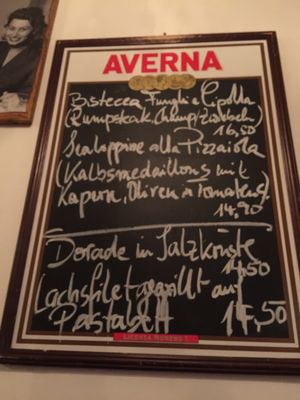 AVERNA
Bistecca Funghi e Cipolla
(Rumpsteak, Champ/Zwiebeln)
16,50
Scaloppine alla Pizzaiola
(Kalbsmedaillons mit
Kapern, Oliven u Tomaten)
14,90
Dorade in Salzkruste
14,50
Lachsfilet gegrillt auf
Pastabett 17,50
LICENZA NUMERO 1